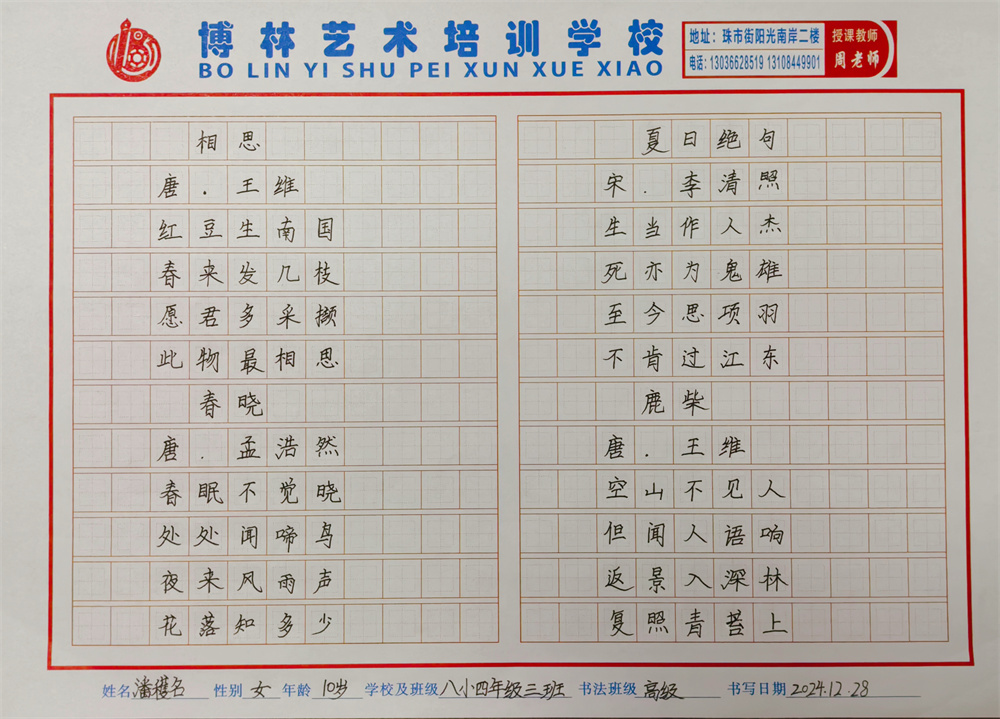 博林艺术培训学校
BO LIN YI SHU PEI XUN XUE XIAO
地址：珠市街阳光南岸二楼
电话：13036628519 13108449901
授课教师
周老师
相思
唐．王维
红豆生南国
春来发几枝
愿君多采撷
此物最相思
春晓
唐．孟浩然
春眠不觉晓
处处闻啼鸟
夜来风雨声
花落知多少
夏日绝句
宋．李清照
生当作人杰
死亦为鬼雄
至今思项羽
不肯过江东
鹿柴
唐．王维
空山不见人
但闻人语响
返景入深林
复照青苔上
姓名 潘 名 性别 女 年龄 10岁 学校及班级 八小四年级三班 书法班级 高级 书写日期 2024.12.28